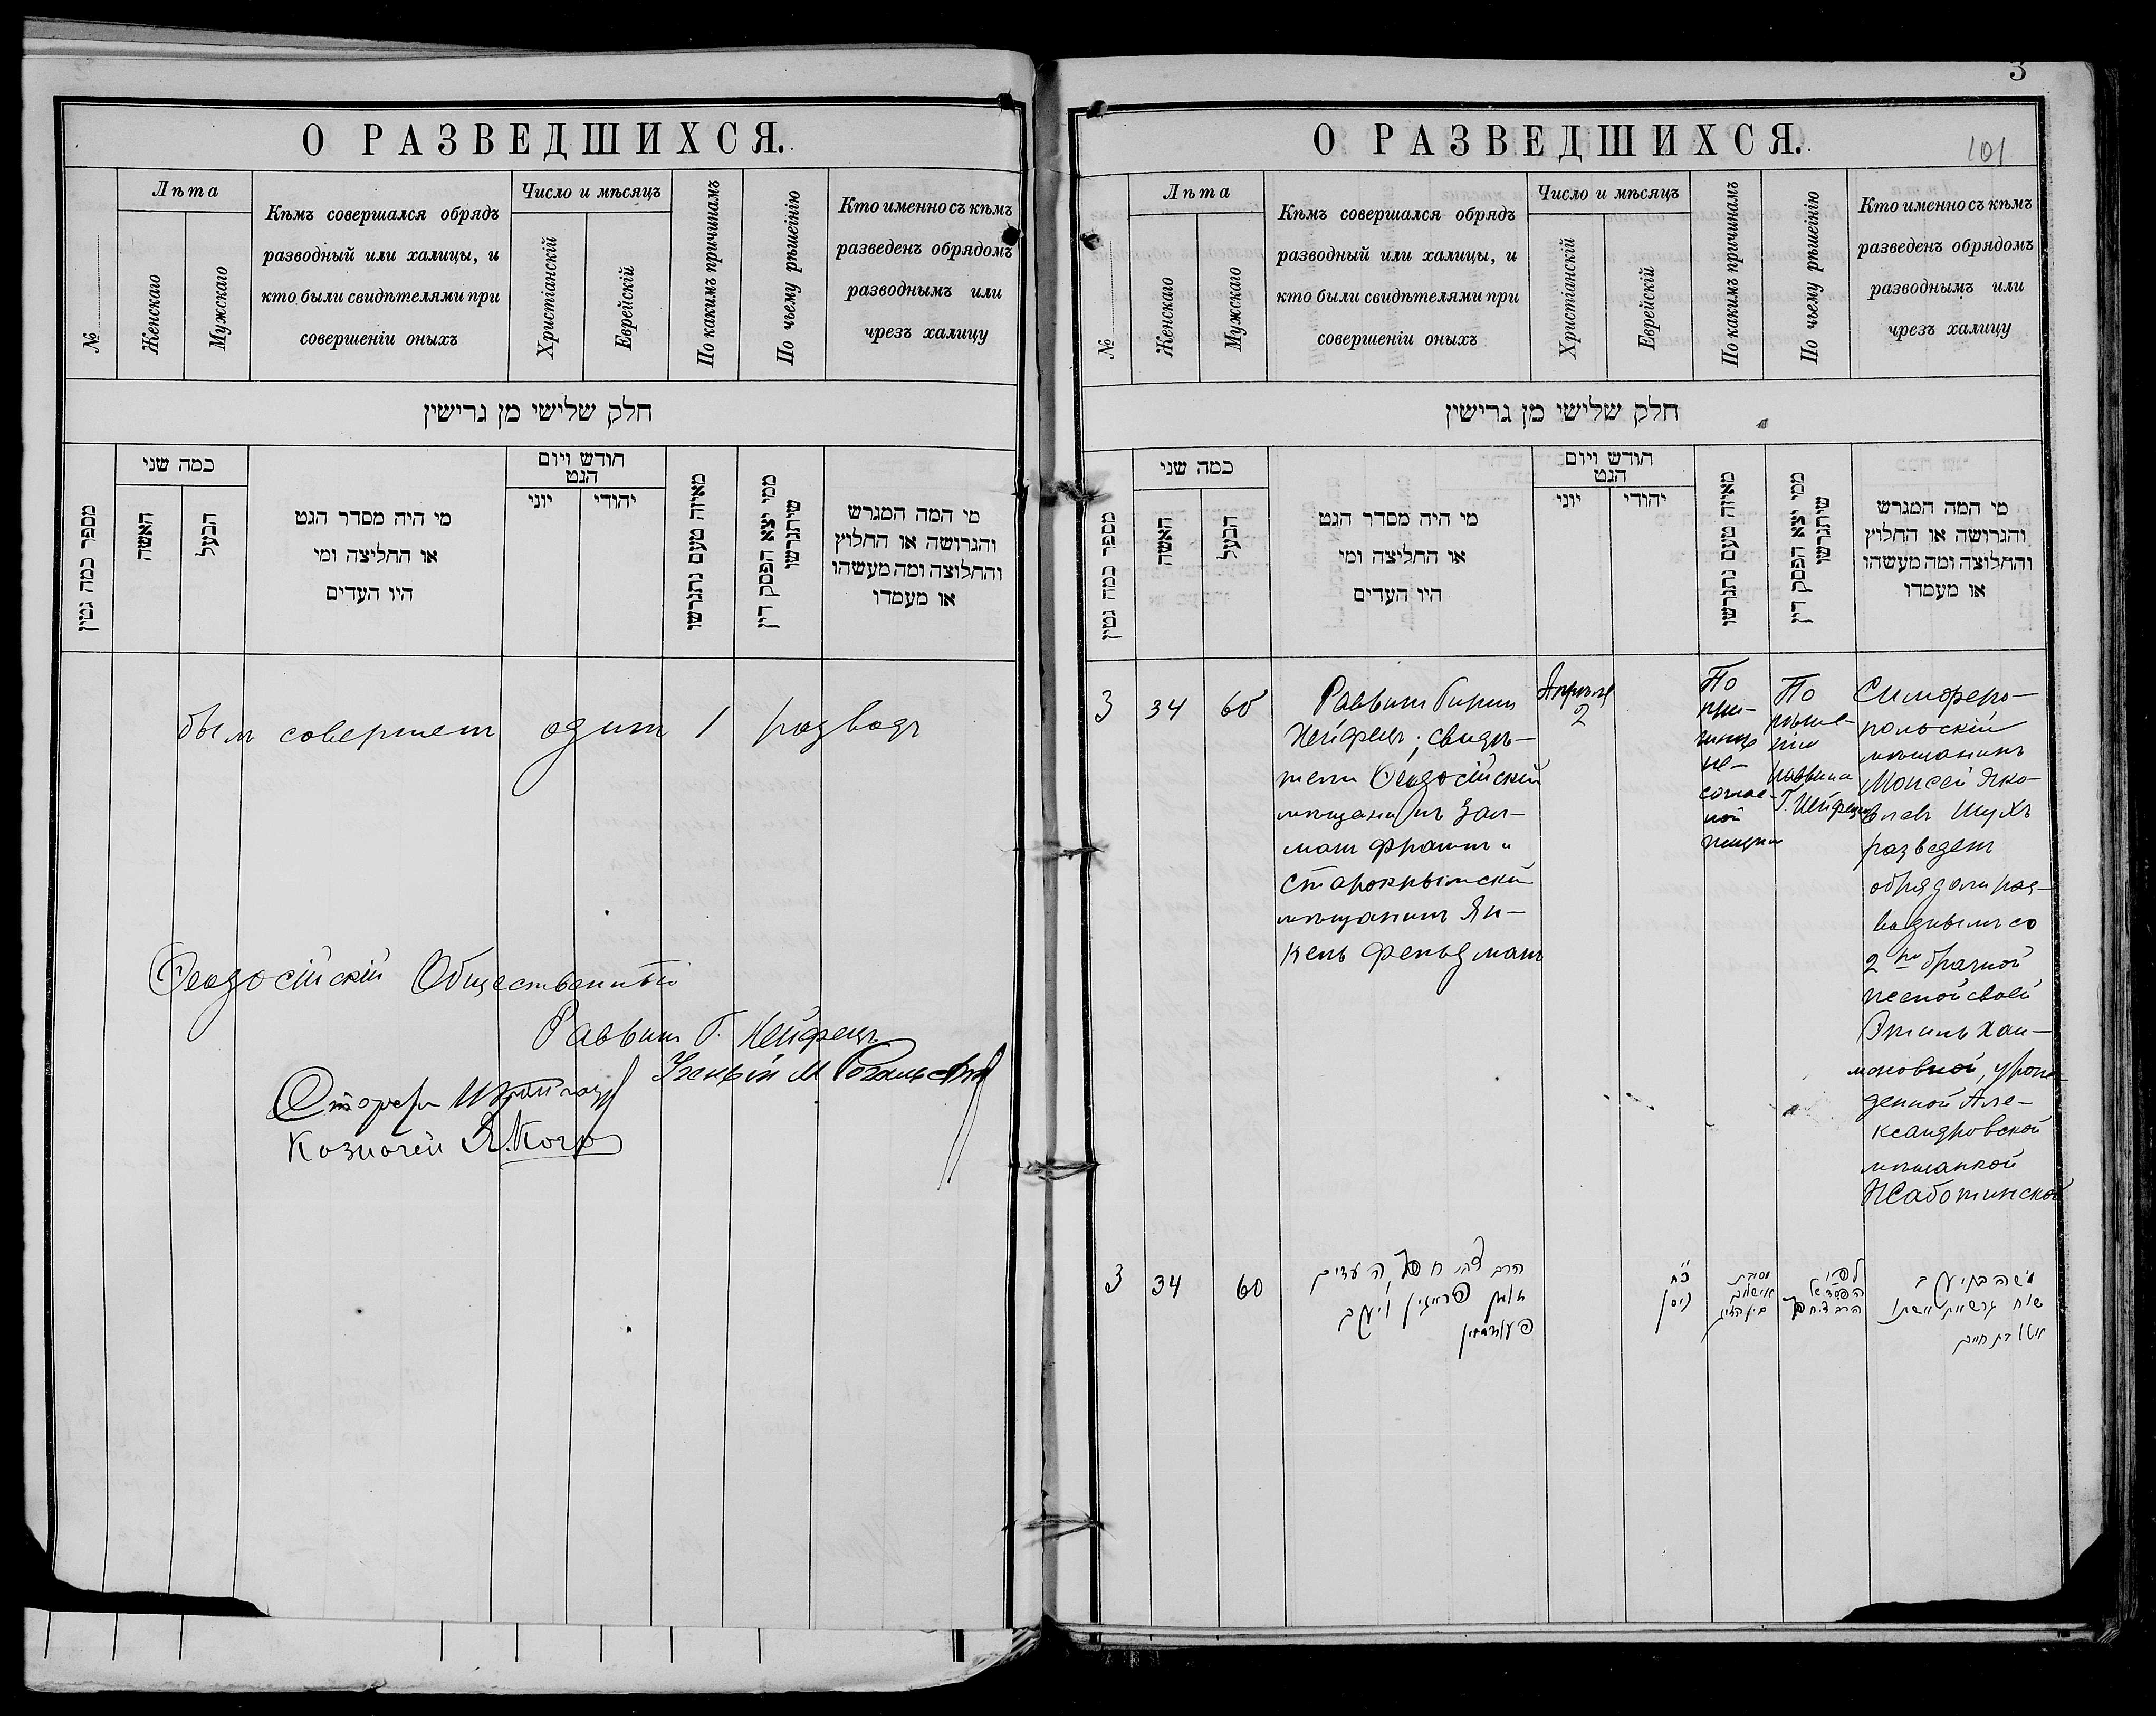 О РАЗВЕДШИХСЯ.
№
Лѣта
Женскаго
Мужскаго
Кѣмъ совершался обрядъ
разводный или халицы, и
кто были свидѣтелями при
совершеніи оныхъ
Число и мѣсяцъ
Христіанскій
Еврейскій
По какимъ причинамъ
По чьему рѣшенію
Кто именно съ кѣмъ
разведенъ обрядомъ
разводнымъ или
чрезъ халицу
חלק שלישי מן גרישין
מספר כמה גטין
כמה שני
האשה
הבעל
מי היה מסדר הגט
או החליצה ומי
היו העדים
חודש ויום
הגט
יוני
יהודי
מאיזה טעם נתגרשו
ממי יצא הפסק דין
שיתגרשו
מי המה המגרש
והגרושה או החלוץ
והחלוצה ומה מעשהו
או מעמדו
былъ совершенъ одинъ 1 разводъ
Ѳеодосійскій Общественный
Раввинъ Г. Нейфецъ
Староста
Казначей Я. Коганъ
3
101
О РАЗВЕДШИХСЯ.
№
Лѣта
Женскаго
Мужскаго
Кѣмъ совершался обрядъ
разводный или халицы, и
кто были свидѣтелями при
совершеніи оныхъ
Число и мѣсяцъ
Христіанскій
Еврейскій
По какимъ причинамъ
По чьему рѣшенію
Кто именно съ кѣмъ
разведенъ обрядомъ
разводнымъ или
чрезъ халицу
חלק שלישי מן גרישין
מספר כמה גטין
כמה שני
האשה
הבעל
מי היה מסדר הגט
או החליצה ומי
היו העדים
חודש ויום
הגט
יוני
יהודי
מאיזה טעם נתגרשו
ממי יצא הפסק דין
שיתגרשו
מי המה המגרש
והגרושה או החלוץ
והחלוצה ומה מעשהו
או מעמדו
3
34
60
Раввинъ Гирш
Нейфецъ; свидѣ-
тели Ѳеодосійскій
мѣщанинъ Зал-
манъ и
Старокрымскій
мѣщанинъ Ян-
кель Фельдманъ
Апрѣля
2
По
при-
чинѣ
не-
соглас-
ной
жизни
По
рѣше-
нію
раввина
Г. Нейфеца
Симферо-
польскій
мѣщанинъ
Моисей Яко-
влевъ Шухъ
разведенъ
обрядомъ раз-
воднымъ со
2 но брачной
женой своей
Этиль Хаи-
мовной, урож-
денной Але-
ксандровской
мѣщанкой
Жаботинской
3
34
60
הרב צבי העדים
ויעקב
כ״ח
ניסן
לפי
משה בן יעקב
שוח אשתו
בת חיים